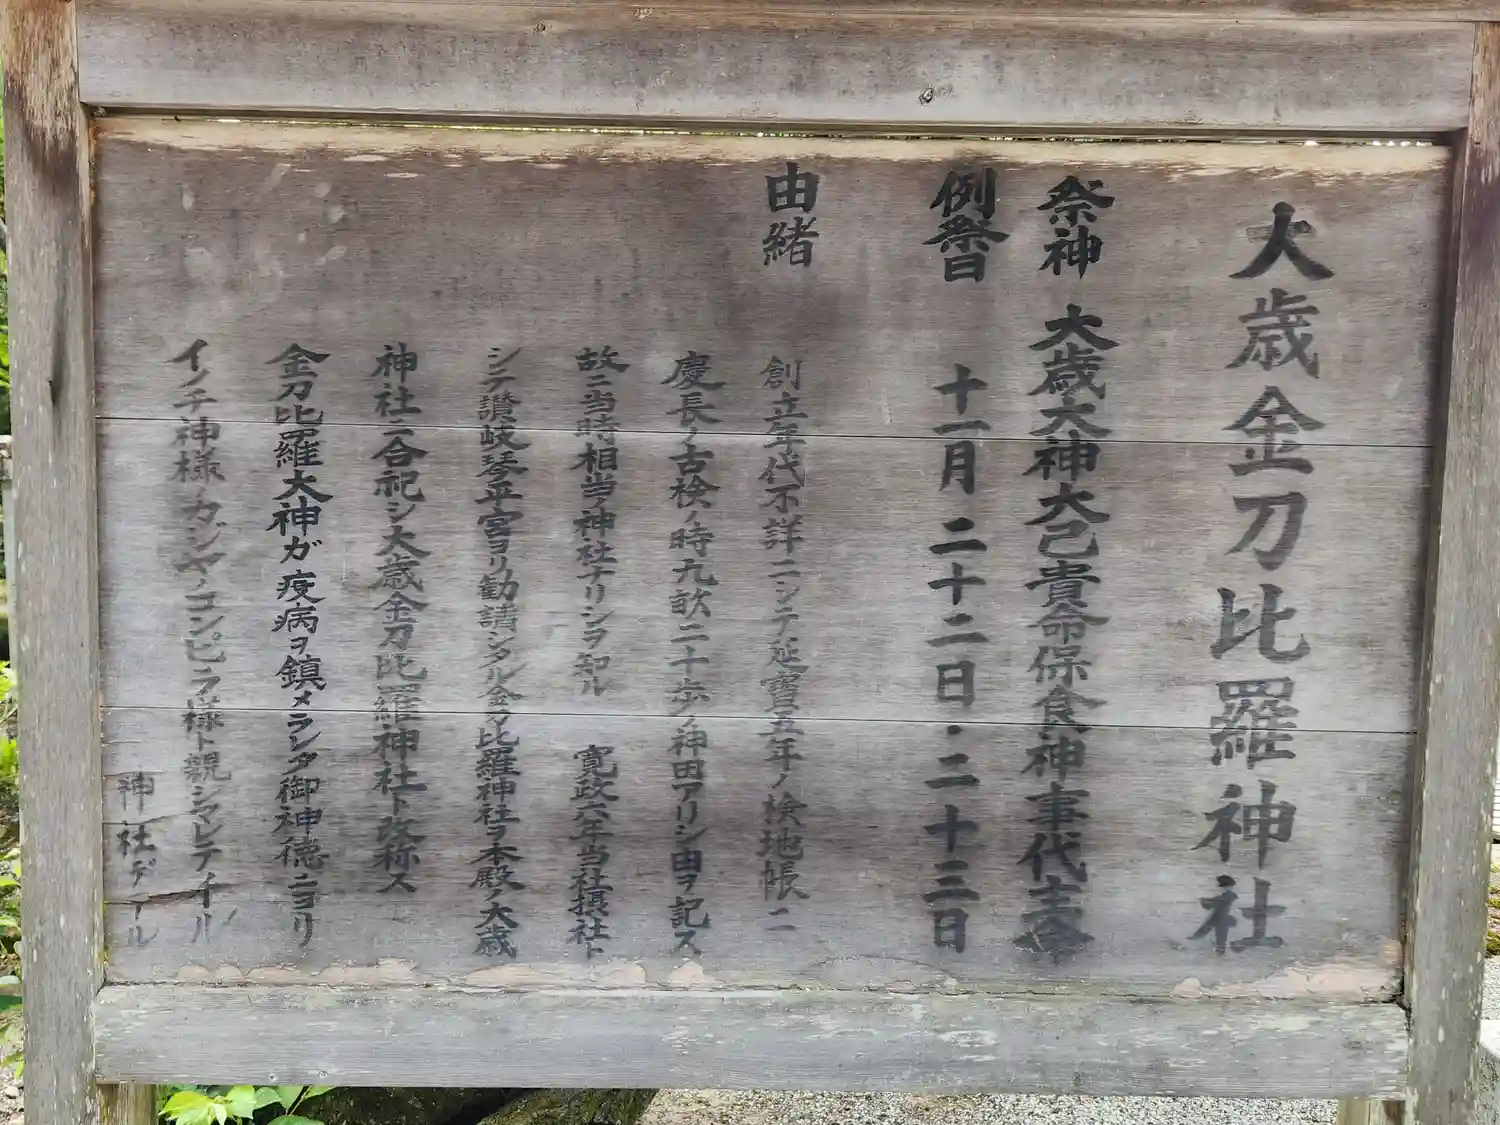 大歳金刀比羅神社
祭神 大歳大神大己貴命保食神事代主命
例祭日 十一月二十二日・二十三日
由緒
創立年代不詳ニシテ延寶五年ノ検地帳ニ
慶長ノ古検ノ時九畝二十歩ノ神田アリシ由ヲ記ス
故ニ当時相当ノ神社ナリシヲ知ル 寛政六年当社摂社ト
シテ讃岐琴平宮ヨリ勧請シタル金刀比羅神社ヲ本殿ノ大歳
神社ニ合祀シ大歳金刀比羅神社ト改称ス
金刀比羅大神ガ疫病ヲ鎮メラレタ御神徳ニヨリ
イノチ神様ノカジヤノコンピラ様ト親シマレテイル
神社デアル